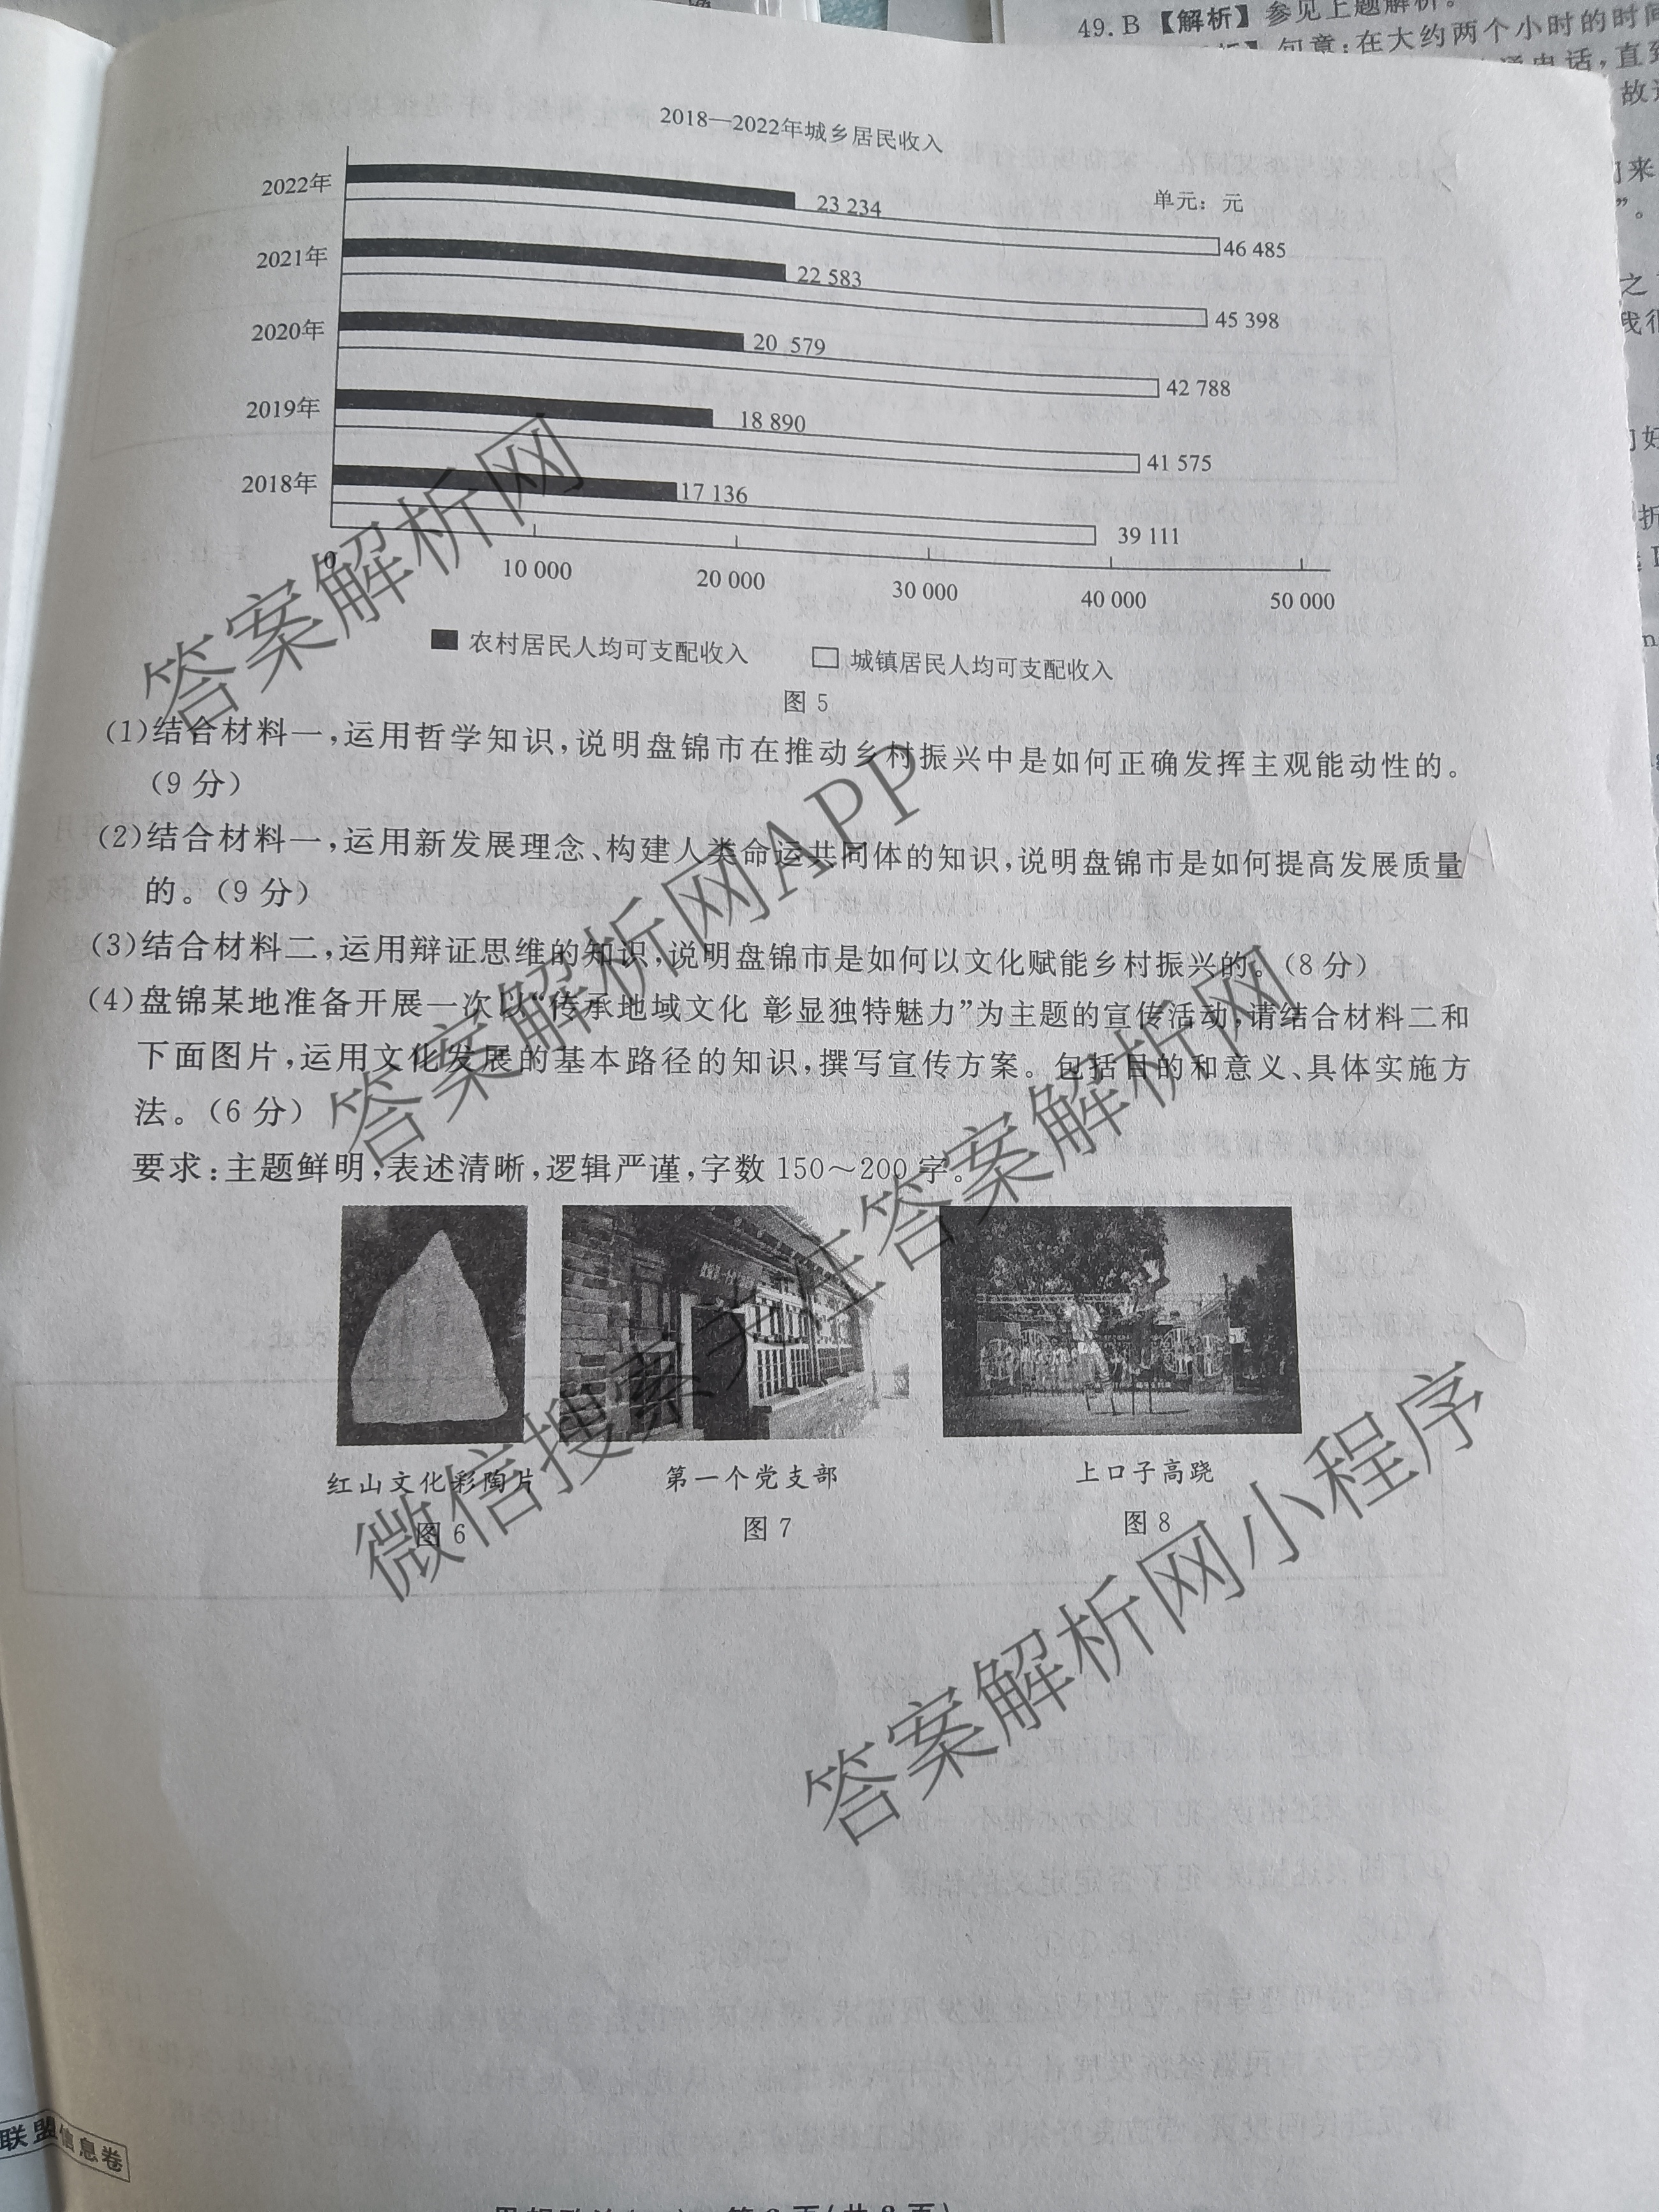 49.B【解析】参见上题解析。
句意:在大约两个小时的时间
2018—2022年城乡居民收入
单元:元
2022年
23 234
46 485
2021年
22 583
45 398
2020年
20 579
42 788
2019年
18 890
41 575
2018年
17 136
39 111
0 10 000 20 000 30 000 40 000 50 000
农村居民人均可支配收入 城镇居民人均可支配收入
图 5
(1)结合材料一,运用哲学知识,说明盘锦市在推动乡村振兴中是如何正确发挥主观能动性的。
(9 分)
(2)结合材料一,运用新发展理念、构建人类命运共同体的知识,说明盘锦市是如何提高发展质量
的。(9 分)
(3)结合材料二,运用辩证思维的知识,说明盘锦市是如何以文化赋能乡村振兴的。(8 分)
(4)盘锦某地准备开展一次以“传承地域文化 彰显独特魅力”为主题的宣传活动,请结合材料二和
下面图片,运用文化发展的基本路径的知识,撰写宣传方案。包括目的和意义、具体实施方
法。(6 分)
要求:主题鲜明,表述清晰,逻辑严谨,字数 150～200 字。
红山文化彩陶片
图 6
第一个党支部
图 7
上口子高跷
图 8
联盟信息卷
答案解析网
答案解析网APP
微信搜索关注答案解析网
答案解析网小程序